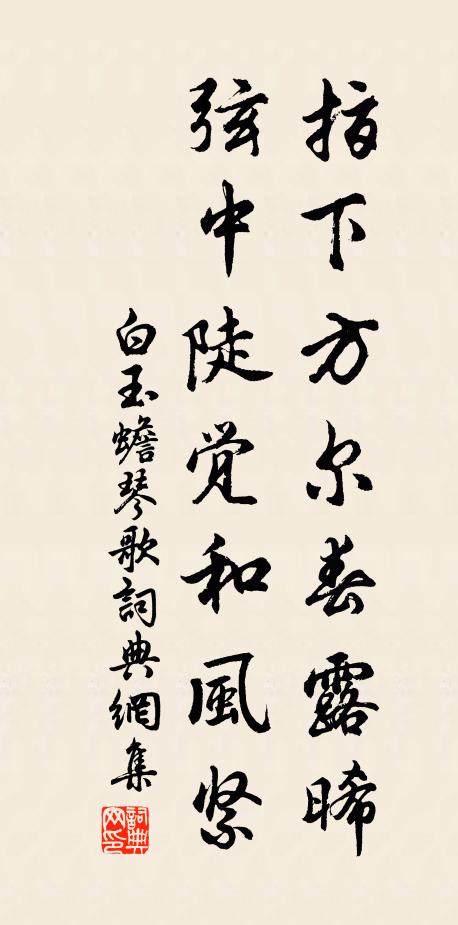 指下方尔春露晞
弦中陡觉和風紧
白玉蟾琴歌詞典網集
詞典網印